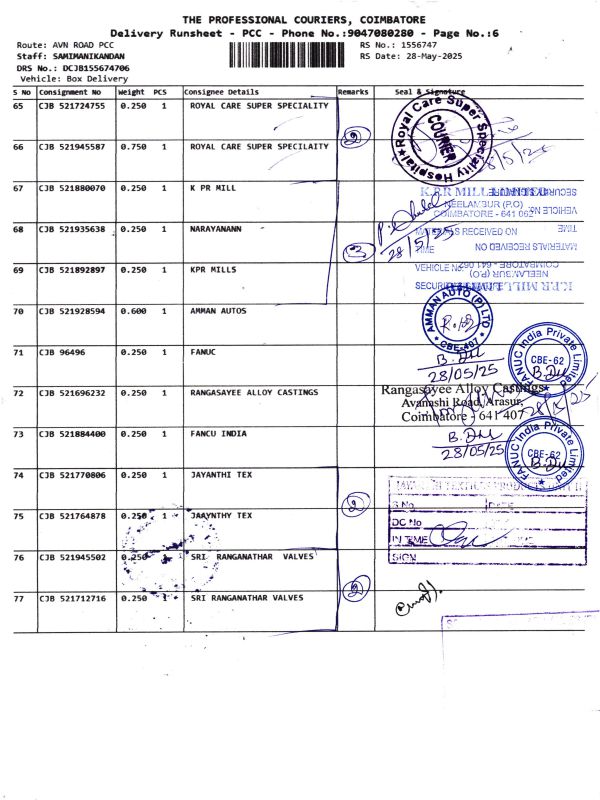 THE PROFESSIONAL COURIERS, COIMBATORE
Delivery Runsheet - PCC - Phone No.:9047080280 - Page No.:6
Route: AVN ROAD PCC
RS No.: 1556747
Staff: SAMIMANIKANDAN
RS Date: 28-May-2025
DRS No.: DCJB155674706
Vehicle: Box Delivery
S No Consignment No Weight PCS Consignee Details Remarks Seal & Signature
65 CJB 521724755 0.250 1 ROYAL CARE SUPER SPECIALITY
Royal Care Super Speciality Hospital
COURIER
2
66 CJB 521945587 0.750 1 ROYAL CARE SUPER SPECILAITY
67 CJB 521880070 0.250 1 K PR MILL
K.P.R MILL
NEELAMBUR (P.O)
COIMBATORE - 641 062
68 CJB 521935638 0.250 1 NARAYANANN
MATERIALS RECEIVED ON
TIME
28/5/25
3
69 CJB 521892897 0.250 1 KPR MILLS
VEHICLE No
SECURITY
70 CJB 521928594 0.600 1 AMMAN AUTOS
AMMAN AUTO (P) LTD
CBE-407
71 CJB 96496 0.250 1 FANUC
28/05/25
FANUC India Private Limited
CBE-62
72 CJB 521696232 0.250 1 RANGASAYEE ALLOY CASTINGS
Rangasayee Alloy Castings
Avanashi Road, Arasur,
Coimbatore - 641 407
73 CJB 521884400 0.250 1 FANCU INDIA
28/05/25
FANUC India Private Limited
CBE-62
74 CJB 521770806 0.250 1 JAYANTHI TEX
2
75 CJB 521764878 0.250 1 JAAYNTHY TEX
DC No
IN TIME
SIGN
76 CJB 521945502 0.250 1 SRI RANGANATHAR VALVES
77 CJB 521712716 0.250 1 SRI RANGANATHAR VALVES
2